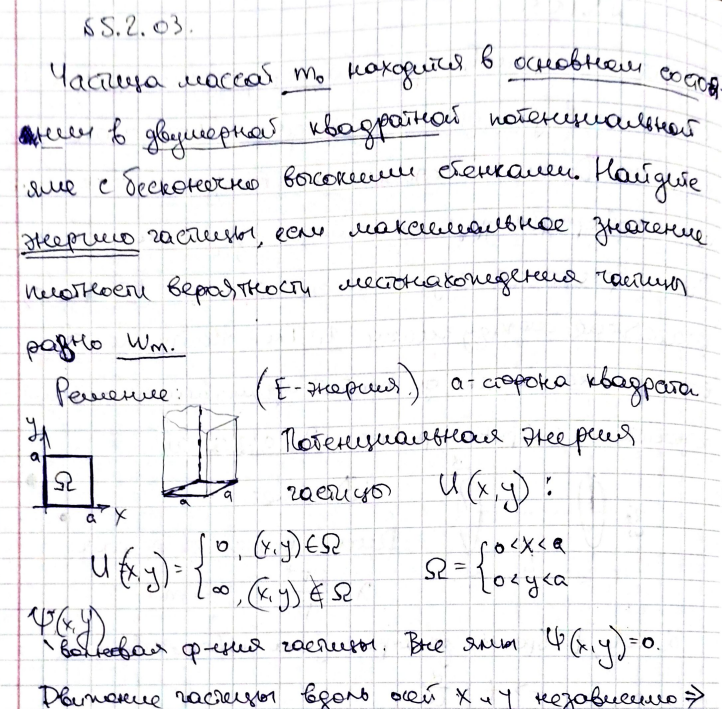 §5.2.03.
Частица массой m₀ находится в основном состоя-
нии в двумерной квадратной потенциальной
яме с бесконечно высокими стенками. Найдите
энергию частицы, если максимальное значение
плотности вероятности местонахождения частицы
равно Wm.
Решение: (E-энергия) a-сторона квадрата
Потенциальная энергия
частицы U(x,y):
y
a
Ω
a x
a a
U(x,y) = { 0, (x,y)∈Ω
∞, (x,y)∉Ω
Ω = { 0<x<a
0<y<a
Ψ(x,y)
волновая ф-ция частицы. Вне ямы Ψ(x,y)=0.
Движение частицы вдоль осей x и y независимо ⇒